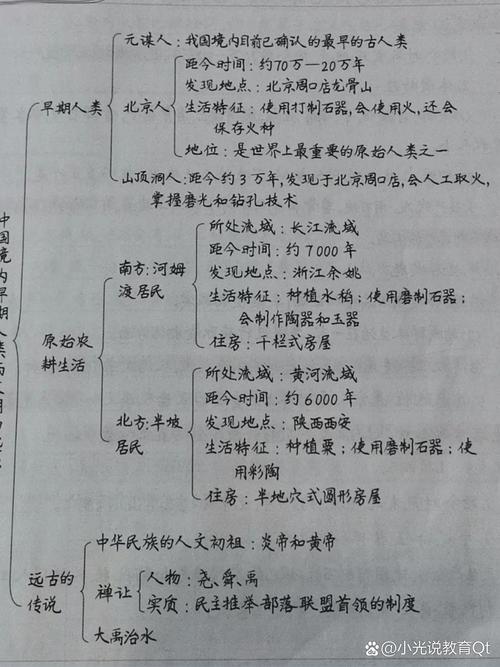 元谋人：我国境内目前已确认的最早的古人类
距今时间：约70万—20万年
发现地点：北京周口店龙骨山
早期人类
北京人
生活特征：使用打制石器，会使用火，还会
保存火种
地位：是世界上最重要的原始人类之一
山顶洞人：距今约3万年，发现于北京周口店，会人工取火，
掌握磨光和钻孔技术
中国境内早期人类
所处流域：长江流域
距今时间：约7000年
南方：河姆
渡居民
发现地点：浙江余姚
生活特征：种植水稻；使用磨制石器；
会制作陶器和玉器
住房：干栏式房屋
原始农
耕生活
所处流域：黄河流域
距今时间：约6000年
北方：半坡
居民
发现地点：陕西西安
生活特征：种植粟；使用磨制石器；使
用彩陶
住房：半地穴式圆形房屋
中华民族的人文初祖：炎帝和黄帝
远古的
传说
禅让
人物：尧、舜、禹
实质：民主推举部落联盟首领的制度
大禹治水
@小光说教育Qt